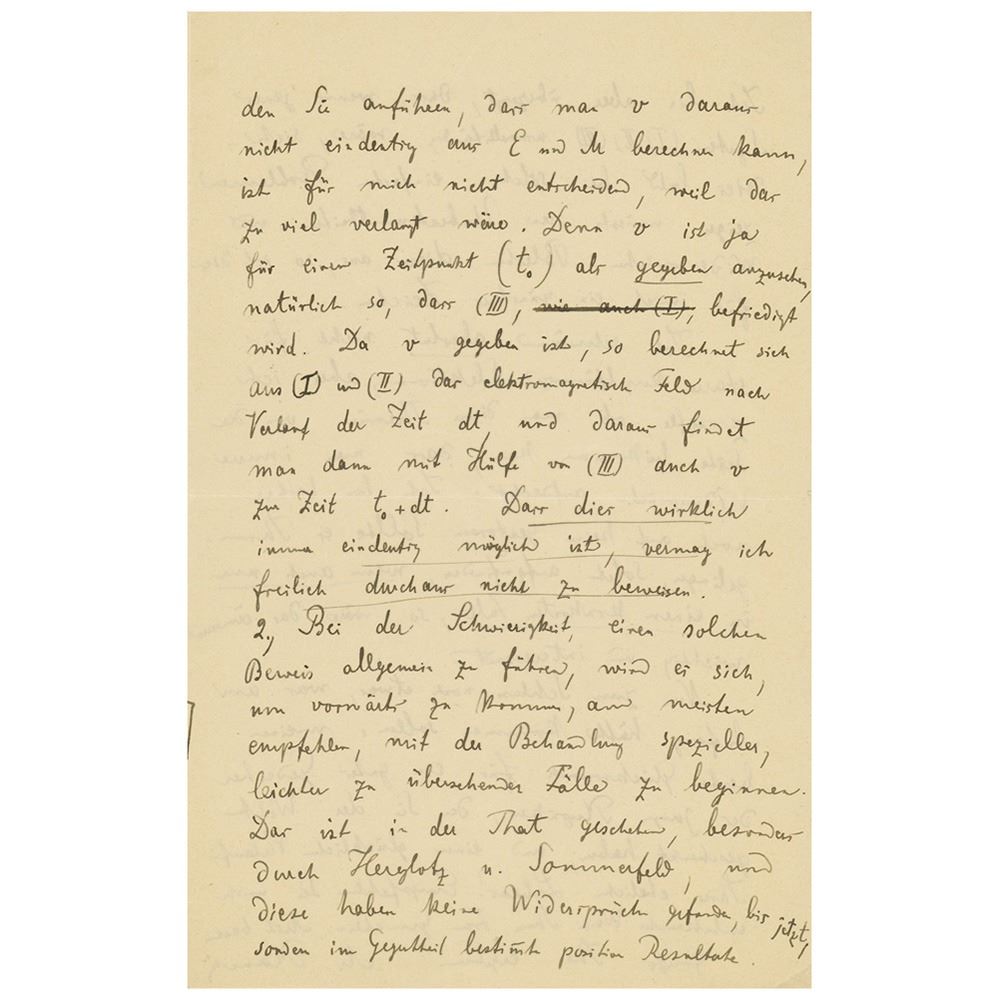 den Sie anführen, dass man v daraus
nicht eindeutig aus E und M berechnen kann,
ist für mich nicht entscheidend, weil das
zu viel verlangt wäre. Denn v ist ja
für einen Zeitpunkt (t₀) als gegeben anzusehen,
natürlich so, dass (III), wie auch (I), befriedigt
wird. Da v gegeben ist, so berechnet sich
aus (I) und (II) das elektromagnetische Feld nach
Verlauf der Zeit dt, und daraus findet
man dann mit Hülfe von (III) auch v
zur Zeit t₀+dt. Dass dies wirklich
immer eindeutig möglich ist, vermag ich
freilich durchaus nicht zu beweisen.
2., Bei der Schwierigkeit, einen solchen
Beweis allgemein zu führen, wird es sich,
um vorwärts zu kommen, am meisten
empfehlen, mit der Behandlung spezieller,
leichter zu übersehender Fälle zu beginnen.
Das ist in der That geschehen, besonders
durch Herglotz u. Sommerfeld, und
diese haben keine Widersprüche gefunden, bis jetzt,
sondern im Gegentheil bestim̄te positive Resultate.